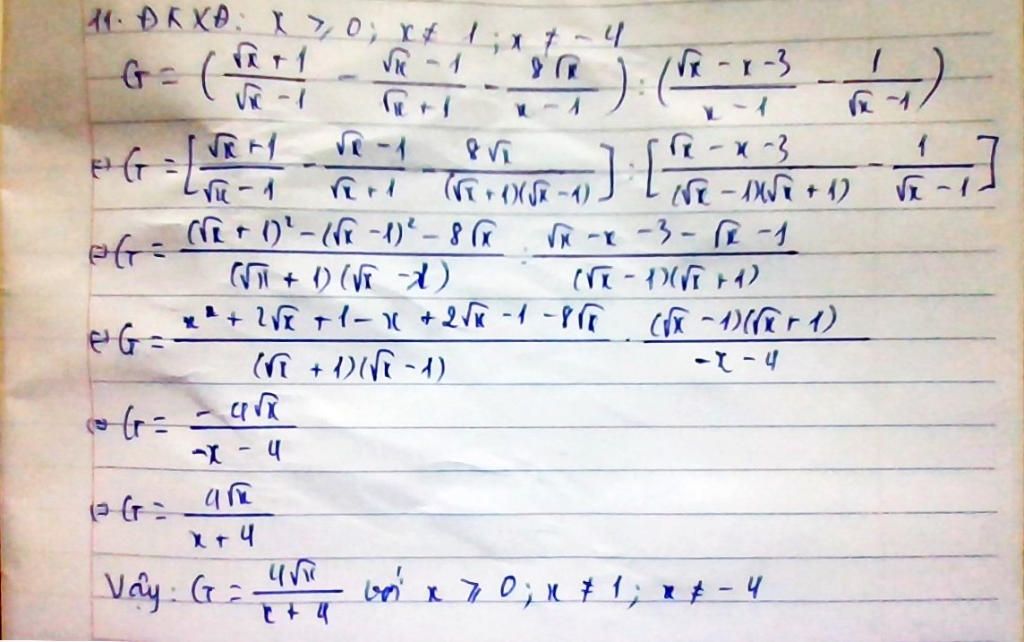 11. ĐKXĐ: x ⩾ 0; x ≠ 1; x ≠ -4
G = ( (√x + 1)/(√x - 1) - (√x - 1)/(√x + 1) - 8√x/(x - 1) ) : ( (√x - x - 3)/(x - 1) - 1/(√x - 1) )
⇔ G = [ (√x + 1)/(√x - 1) - (√x - 1)/(√x + 1) - 8√x/((√x + 1)(√x - 1)) ] : [ (√x - x - 3)/((√x - 1)(√x + 1)) - 1/(√x - 1) ]
⇔ G = ((√x + 1)² - (√x - 1)² - 8√x)/((√x + 1)(√x - 1)) : (√x - x - 3 - √x - 1)/((√x - 1)(√x + 1))
⇔ G = (x + 2√x + 1 - x + 2√x - 1 - 8√x)/((√x + 1)(√x - 1)) · ((√x - 1)(√x + 1))/(-x - 4)
⇔ G = (-4√x)/(-x - 4)
⇔ G = 4√x/(x + 4)
Vậy: G = 4√x/(x + 4) với x ⩾ 0; x ≠ 1; x ≠ -4